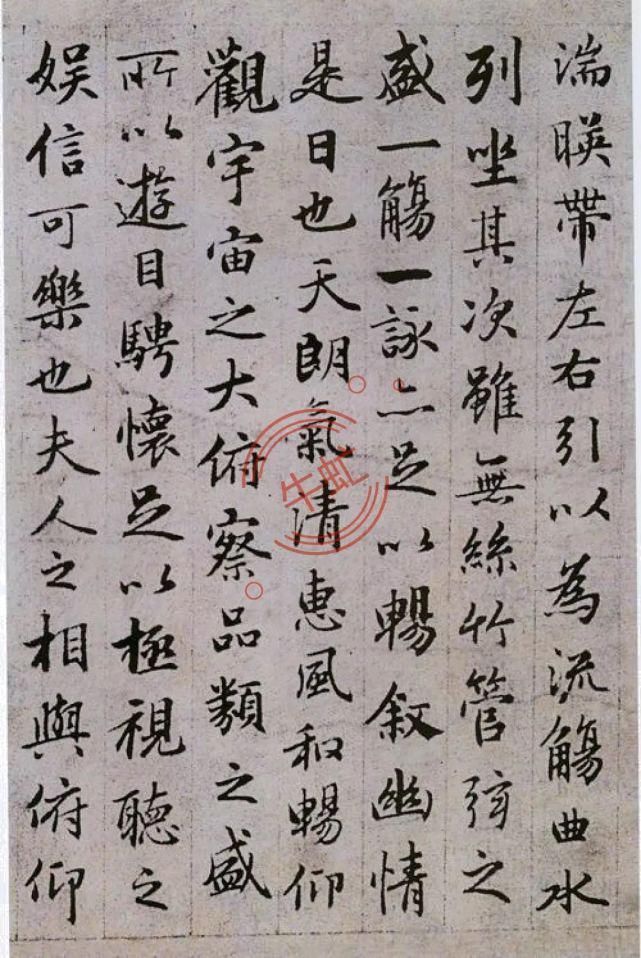 湍暎帶左右引以為流觴曲水
列坐其次雖無絲竹管弦之
盛一觴一詠亦足以暢敘幽情
是日也天朗氣清惠風和暢仰
觀宇宙之大俯察品類之盛
所以遊目騁懷足以極視聽之
娱信可樂也夫人之相與俯仰
牛虻